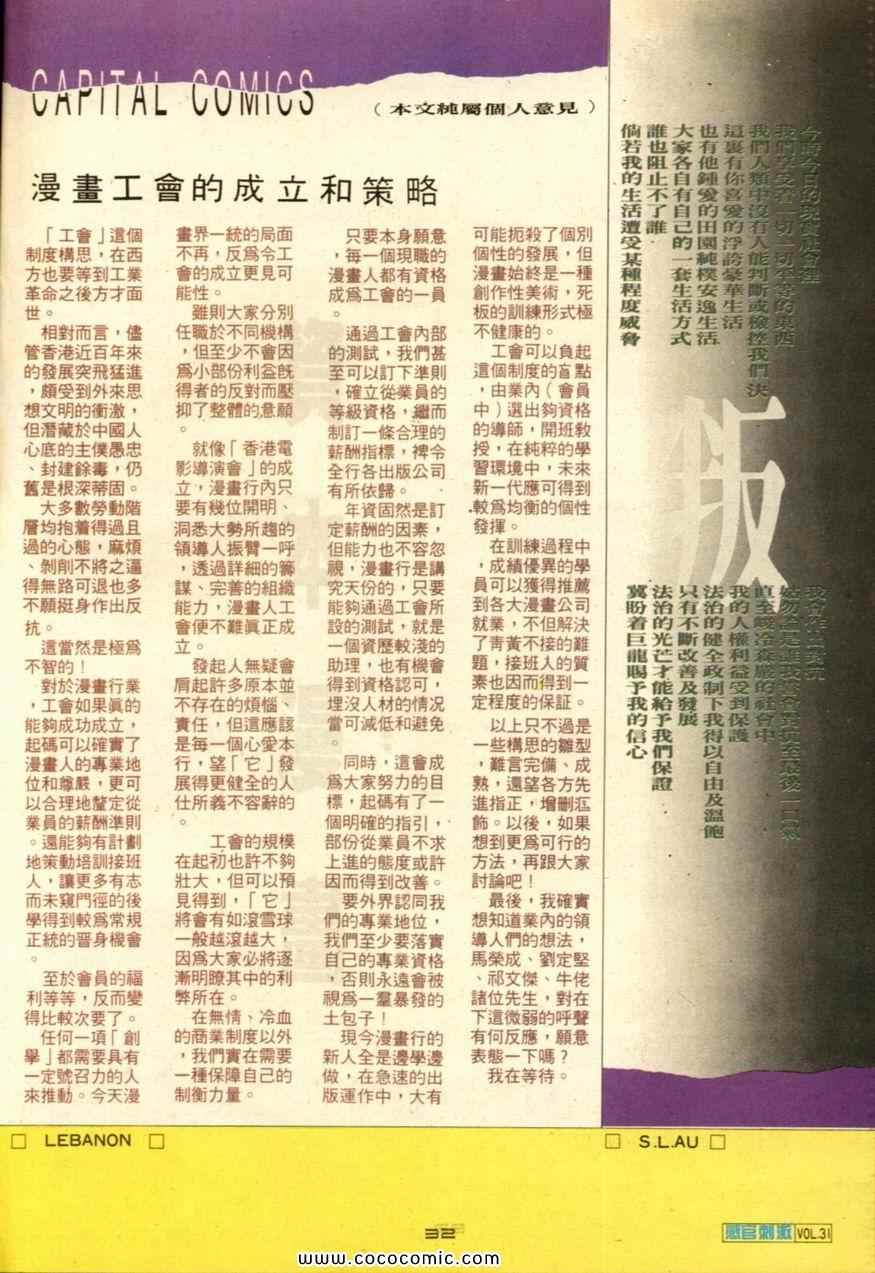 CAPITAL COMICS
（本文純屬個人意見）
漫畫工會的成立和策略
「工會」這個
制度構思，在西
方也要等到工業
革命之後方才面
世。
相對而言，儘
管香港近百年來
的發展突飛猛進
，頗受到外來思
想文明的衝激，
但潛藏於中國人
心底的主僕愚忠
、封建餘毒，仍
舊是根深蒂固。
大多數勞動階
層均抱着得過且
過的心態，麻煩
、剝削不將之逼
得無路可退也多
不願挺身作出反
抗。
這當然是極爲
不智的！
對於漫畫行業
，工會如果眞的
能夠成功成立，
起碼可以確實了
漫畫人的專業地
位和尊嚴，更可
以合理地釐定從
業員的薪酬準則
。還能夠有計劃
地策動培訓接班
人，讓更多有志
而未窺門徑的後
學得到較爲常規
正統的晋身機會
。
至於會員的福
利等等，反而變
得比較次要了。
任何一項「創
擧」都需要具有
一定號召力的人
來推動。今天漫
畫界一統的局面
不再，反爲令工
會的成立更見可
能性。
雖則大家分別
任職於不同機構
，但至少不會因
爲小部份利益旣
得者的反對而壓
抑了整體的意願
。
就像「香港電
影導演會」的成
立，漫畫行內只
要有幾位開明、
洞悉大勢所趨的
領導人振臂一呼
，透過詳細的籌
謀、完善的組織
能力，漫畫人工
會便不難眞正成
立。
發起人無疑會
肩起許多原本並
不存在的煩惱、
責任，但這應該
是每一個心愛本
行，望「它」發
展得更健全的人
仕所義不容辭的
。
工會的規模
在起初也許不夠
壯大，但可以預
見得到，「它」
將會有如滾雪球
一般越滾越大，
因爲大家必將逐
漸明瞭其中的利
弊所在。
在無情、冷血
的商業制度以外
，我們實在需要
一種保障自己的
制衡力量。
只要本身願意
，每一個現職的
漫畫人都有資格
成爲工會的一員
。
通過工會內部
的測試，我們甚
至可以訂下準則
，確立從業員的
等級資格，繼而
制訂一條合理的
薪酬指標，裨令
全行各出版公司
有所依歸。
年資固然是訂
定薪酬的因素，
但能力也不容忽
視，漫畫行是講
究天份的，只要
能夠通過工會所
設的測試，就是
一個資歷較淺的
助理，也有機會
得到資格認可，
埋沒人材的情况
當可減低和避免
。
同時，這會成
爲大家努力的目
標，起碼有了一
個明確的指引，
部份從業員不求
上進的態度或許
因而得到改善。
要外界認同我
們的專業地位，
我們至少要落實
自己的專業資格
，否則永遠會被
視爲一羣暴發的
土包子！
現今漫畫行的
新人全是邊學邊
做，在急速的出
版運作中，大有
可能扼殺了個別
個性的發展，但
漫畫始終是一種
創作性美術，死
板的訓練形式極
不健康的。
工會可以負起
這個制度的盲點
，由業內（會員
中）選出夠資格
的導師，開班敎
授，在純粹的學
習環境中，未來
新一代應可得到
較爲均衡的個性
發揮。
在訓練過程中
，成績優異的學
員可以獲得推薦
到各大漫畫公司
就業，不但解決
了靑黃不接的難
題，接班人的質
素也因而得到一
定程度的保証。
以上只不過是
一些構思的雛型
，難言完備、成
熟，還望各方先
進指正，增删
飾。以後，如果
想到更爲可行的
方法，再跟大家
討論吧！
最後，我確實
想知道業內的領
導人們的想法，
馬榮成、劉定堅
、祁文傑、牛佬
諸位先生，對在
下這微弱的呼聲
有何反應，願意
表態一下嗎？
我在等待。
今時今日的現實社會裡
我們享受着一切一切平等的東西
我們人類中沒有人能判斷或檢控我們
這裏有你喜愛的浮誇豪華生活
也有他鍾愛的田園純樸安逸生活
大家各自有自己的一套生活方式
誰也阻止不了誰
倘若我的生活遭受某種程度威脅
我會作出對抗
直至峻冷森嚴的社會中
我的人權利益受到保護
法治的健全政制下我得以自由及溫飽
只有不斷改善及發展
法治的光芒才能給予我們保證
冀盼着巨龍賜予我的信心
版
□ LEBANON □
□ S.L.AU □
32
感官刺激 VOL.31
www.cococomic.com